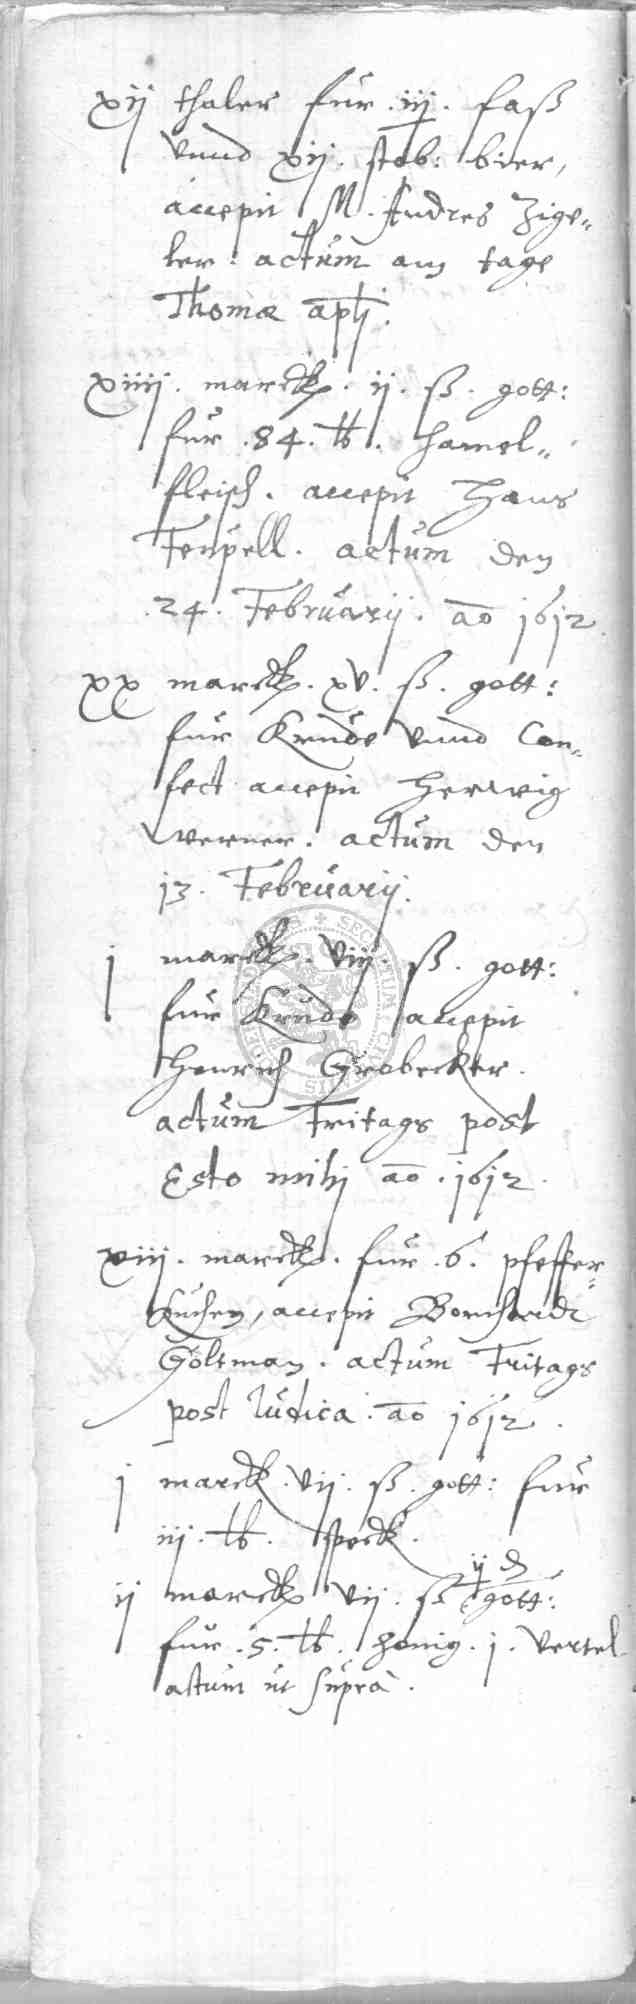 xij thaler fur .iij. faß
vnnd xij. stob: bier,
accepit M. Andres Zige„
ler: actum am tage
Thomæ aplj.
xiiij. marck. ij. ß. gott:
fur .84. lb. hamel„
fleisch. accepit Hans
Tempell. actum den
.24. Februarij. ao 1612.
xx marck. xv. ß. gott:
fur Krude vnnd Con„
fect accepit Herwig
Werner. actum den
13. Februarij.
j marck. viij. ß. gott:
fur Krude accepit
Henrich Grobecker.
actum Fritags post
Esto mihj ao .1612.
viij. marck. fur .6. pfeffer„
Kuchen, accepit Borchardt
Goltman. actum Fritags
post Iudica. ao 1612.
j marck. vij. ß. gott: fur
iij. lb. speck.
ij marck vij. ß ij d gott:
fur .5. lb. honig. j. vertel
actum ut supra.